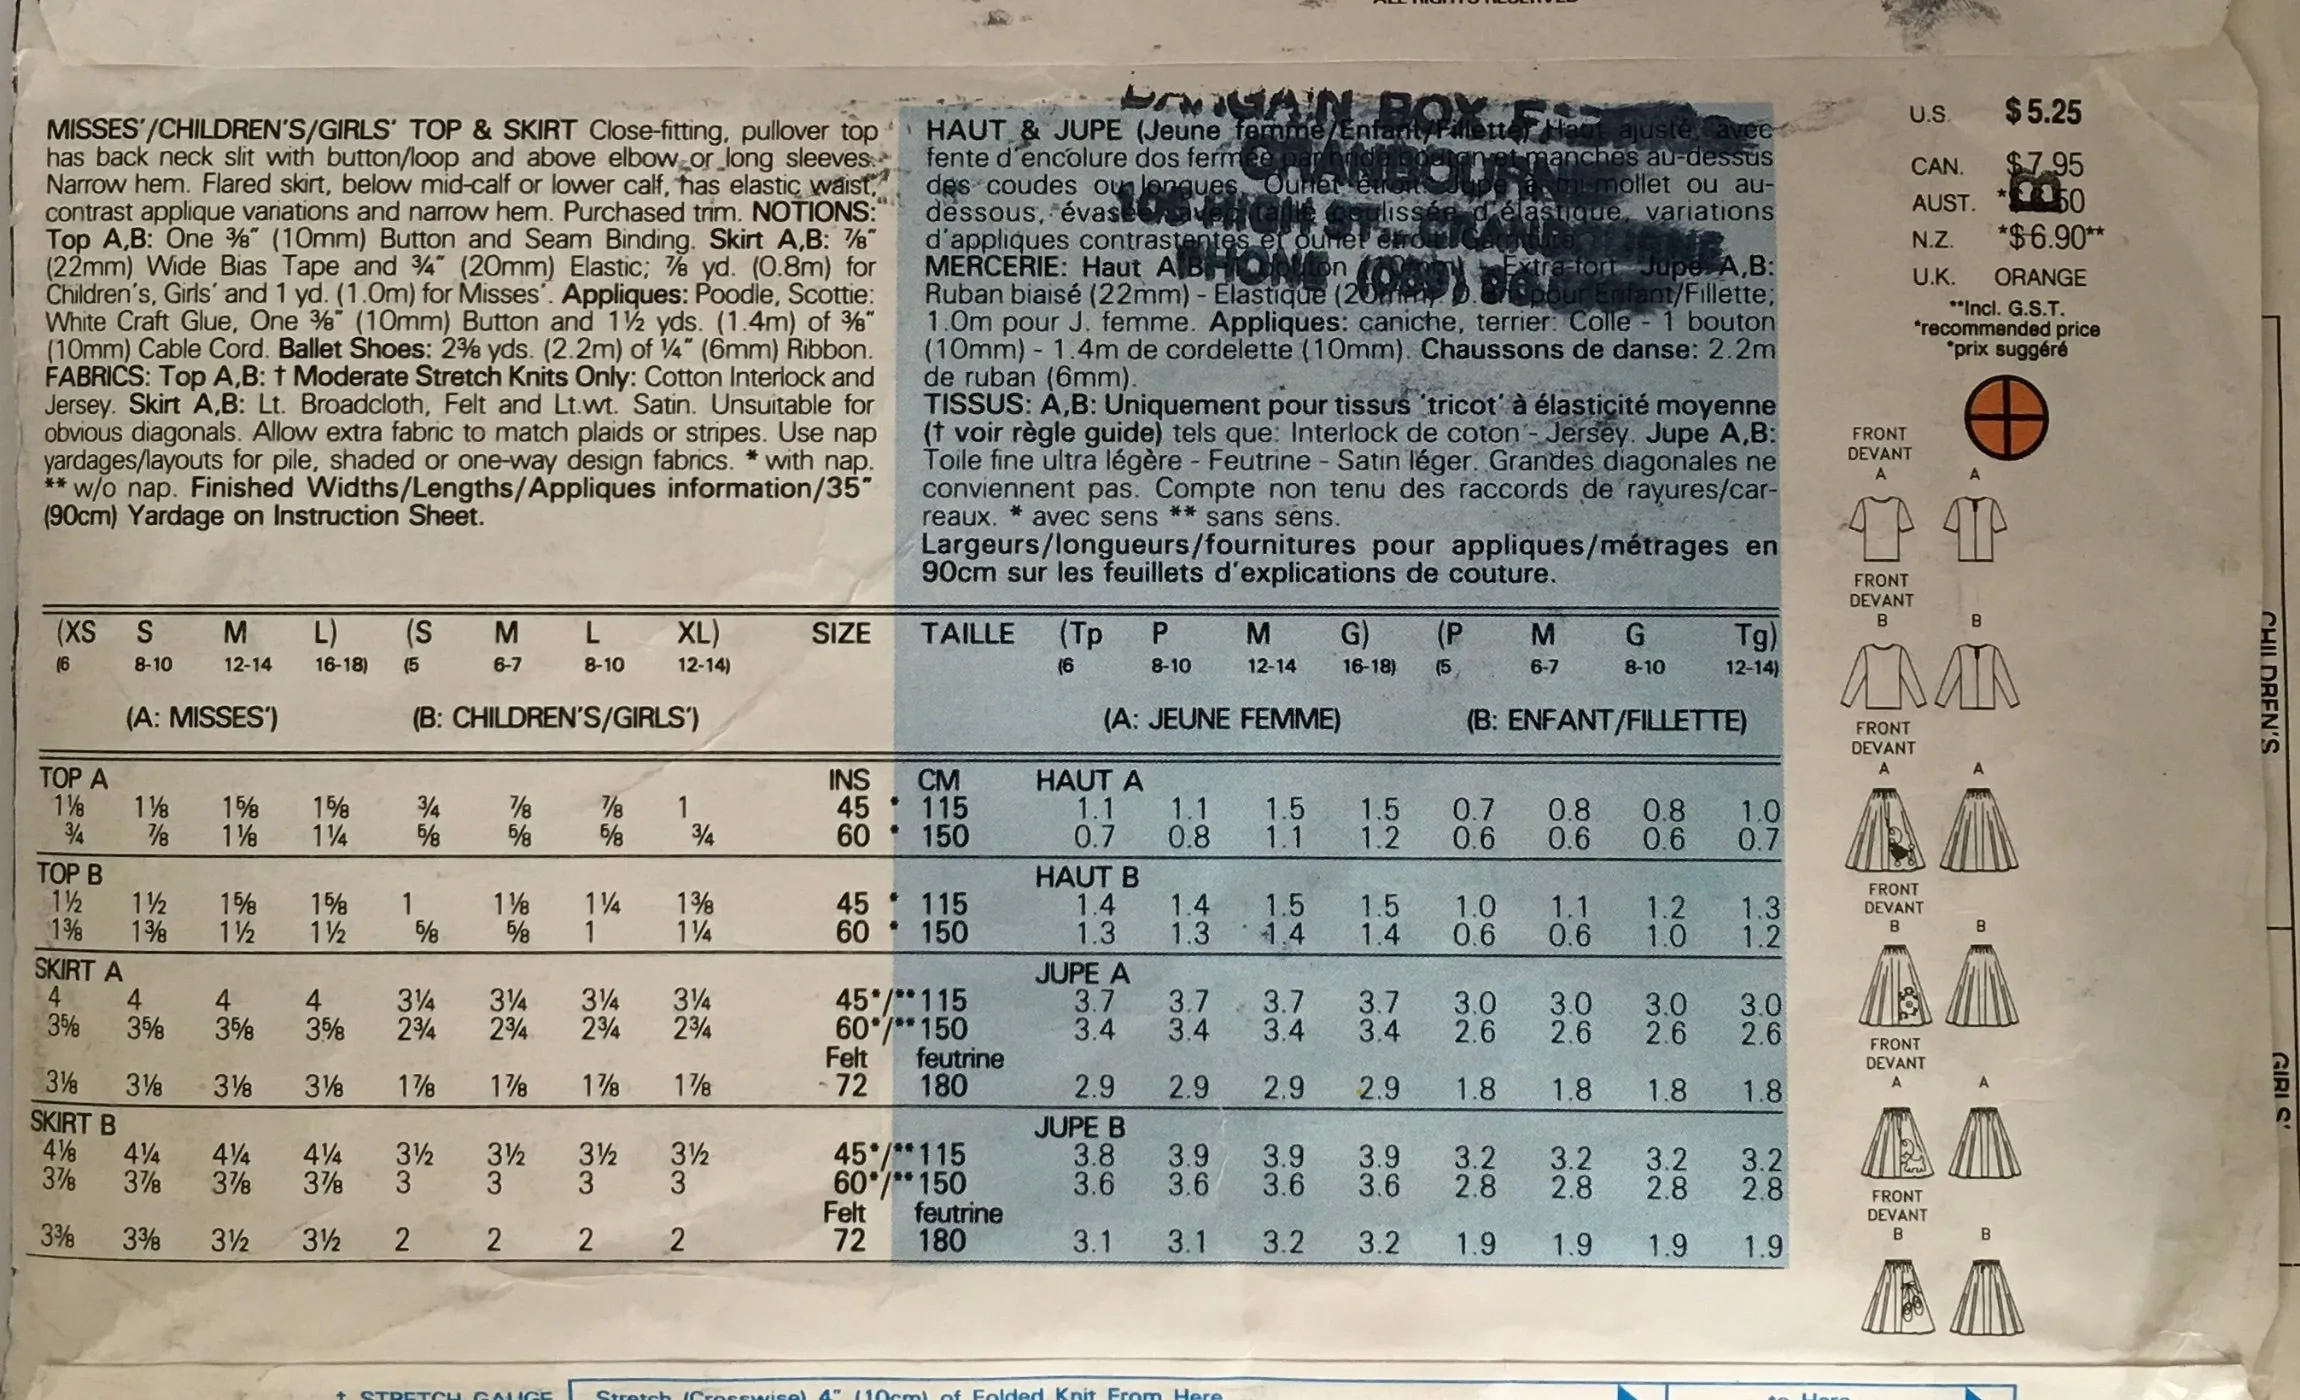 MISSES'/CHILDREN'S/GIRLS' TOP & SKIRT Close-fitting, pullover top
has back neck slit with button/loop and above elbow or long sleeves.
Narrow hem. Flared skirt, below mid-calf or lower calf, has elastic waist,
contrast applique variations and narrow hem. Purchased trim. NOTIONS:
Top A,B: One ⅜" (10mm) Button and Seam Binding. Skirt A,B: ⅞"
(22mm) Wide Bias Tape and ¾" (20mm) Elastic; ⅞ yd. (0.8m) for
Children's, Girls' and 1 yd. (1.0m) for Misses'. Appliques: Poodle, Scottie:
White Craft Glue, One ⅜" (10mm) Button and 1½ yds. (1.4m) of ⅜"
(10mm) Cable Cord. Ballet Shoes: 2⅜ yds. (2.2m) of ¼" (6mm) Ribbon.
FABRICS: Top A,B: † Moderate Stretch Knits Only: Cotton Interlock and
Jersey. Skirt A,B: Lt. Broadcloth, Felt and Lt.wt. Satin. Unsuitable for
obvious diagonals. Allow extra fabric to match plaids or stripes. Use nap
yardages/layouts for pile, shaded or one-way design fabrics. * with nap.
** w/o nap. Finished Widths/Lengths/Appliques information/35"
(90cm) Yardage on Instruction Sheet.
HAUT & JUPE (Jeune femme/Enfant/Fillette) Haut ajusté, avec
fente d'encolure dos fermée par bride bouton et manches au-dessus
des coudes ou longues. Ourlet étroit. Jupe à mi-mollet ou au-
dessous, évasée avec taille coulissée d'élastique, variations
d'appliques contrastantes et ourlet étroit.
MERCERIE: Haut A,B: 1 bouton (10mm) - Extra-fort Jupe A,B:
Ruban biaisé (22mm) - Elastique (20mm): 0.8m pour Enfant/Fillette;
1.0m pour J. femme. Appliques: caniche, terrier: Colle - 1 bouton
(10mm) - 1.4m de cordelette (10mm). Chaussons de danse: 2.2m
de ruban (6mm).
TISSUS: A,B: Uniquement pour tissus 'tricot' à élasticité moyenne
(† voir règle guide) tels que: Interlock de coton - Jersey. Jupe A,B:
Toile fine ultra légère - Feutrine - Satin léger. Grandes diagonales ne
conviennent pas. Compte non tenu des raccords de rayures/car-
reaux. * avec sens ** sans sens.
Largeurs/longueurs/fournitures pour appliques/métrages en
90cm sur les feuillets d'explications de couture.
BARGAIN BOX
CRANBOURNE
108 HIGH ST. CRANBOURNE
PHONE (059)
U.S. $5.25
CAN. $7.95
AUST. *
N.Z. *$6.90**
U.K. ORANGE
**Incl. G.S.T.
*recommended price
*prix suggéré
(XS S M L) (S M L XL) SIZE TAILLE (Tp P M G) (P M G Tg)
(6 8-10 12-14 16-18) (5 6-7 8-10 12-14) (6 8-10 12-14 16-18) (5 6-7 8-10 12-14)
(A: MISSES') (B: CHILDREN'S/GIRLS') (A: JEUNE FEMME) (B: ENFANT/FILLETTE)
TOP A INS CM HAUT A
1⅛ 1⅛ 1⅝ 1⅝ ¾ ⅞ ⅞ 1 45 * 115 1.1 1.1 1.5 1.5 0.7 0.8 0.8 1.0
¾ ⅞ 1⅛ 1¼ ⅝ ⅝ ⅝ ¾ 60 * 150 0.7 0.8 1.1 1.2 0.6 0.6 0.6 0.7
TOP B HAUT B
1½ 1½ 1⅝ 1⅝ 1 1⅛ 1¼ 1⅜ 45 * 115 1.4 1.4 1.5 1.5 1.0 1.1 1.2 1.3
1⅜ 1⅜ 1½ 1½ ⅝ ⅝ 1 1¼ 60 * 150 1.3 1.3 1.4 1.4 0.6 0.6 1.0 1.2
SKIRT A JUPE A
4 4 4 4 3¼ 3¼ 3¼ 3¼ 45*/**115 3.7 3.7 3.7 3.7 3.0 3.0 3.0 3.0
3⅝ 3⅝ 3⅝ 3⅝ 2¾ 2¾ 2¾ 2¾ 60*/**150 3.4 3.4 3.4 3.4 2.6 2.6 2.6 2.6
Felt feutrine
3⅛ 3⅛ 3⅛ 3⅛ 1⅞ 1⅞ 1⅞ 1⅞ 72 180 2.9 2.9 2.9 2.9 1.8 1.8 1.8 1.8
SKIRT B JUPE B
4⅛ 4¼ 4¼ 4¼ 3½ 3½ 3½ 3½ 45*/**115 3.8 3.9 3.9 3.9 3.2 3.2 3.2 3.2
3⅞ 3⅞ 3⅞ 3⅞ 3 3 3 3 60*/**150 3.6 3.6 3.6 3.6 2.8 2.8 2.8 2.8
Felt feutrine
3⅜ 3⅜ 3½ 3½ 2 2 2 2 72 180 3.1 3.1 3.2 3.2 1.9 1.9 1.9 1.9
FRONT
DEVANT
A A
FRONT
DEVANT
B B
FRONT
DEVANT
A A
FRONT
DEVANT
B B
FRONT
DEVANT
A A
FRONT
DEVANT
B B
CHILDREN'S
GIRLS'
† STRETCH GAUGE Stretch (Crosswise) 4" (10cm) of Folded Knit From Here to Here
ALL RIGHTS RESERVED